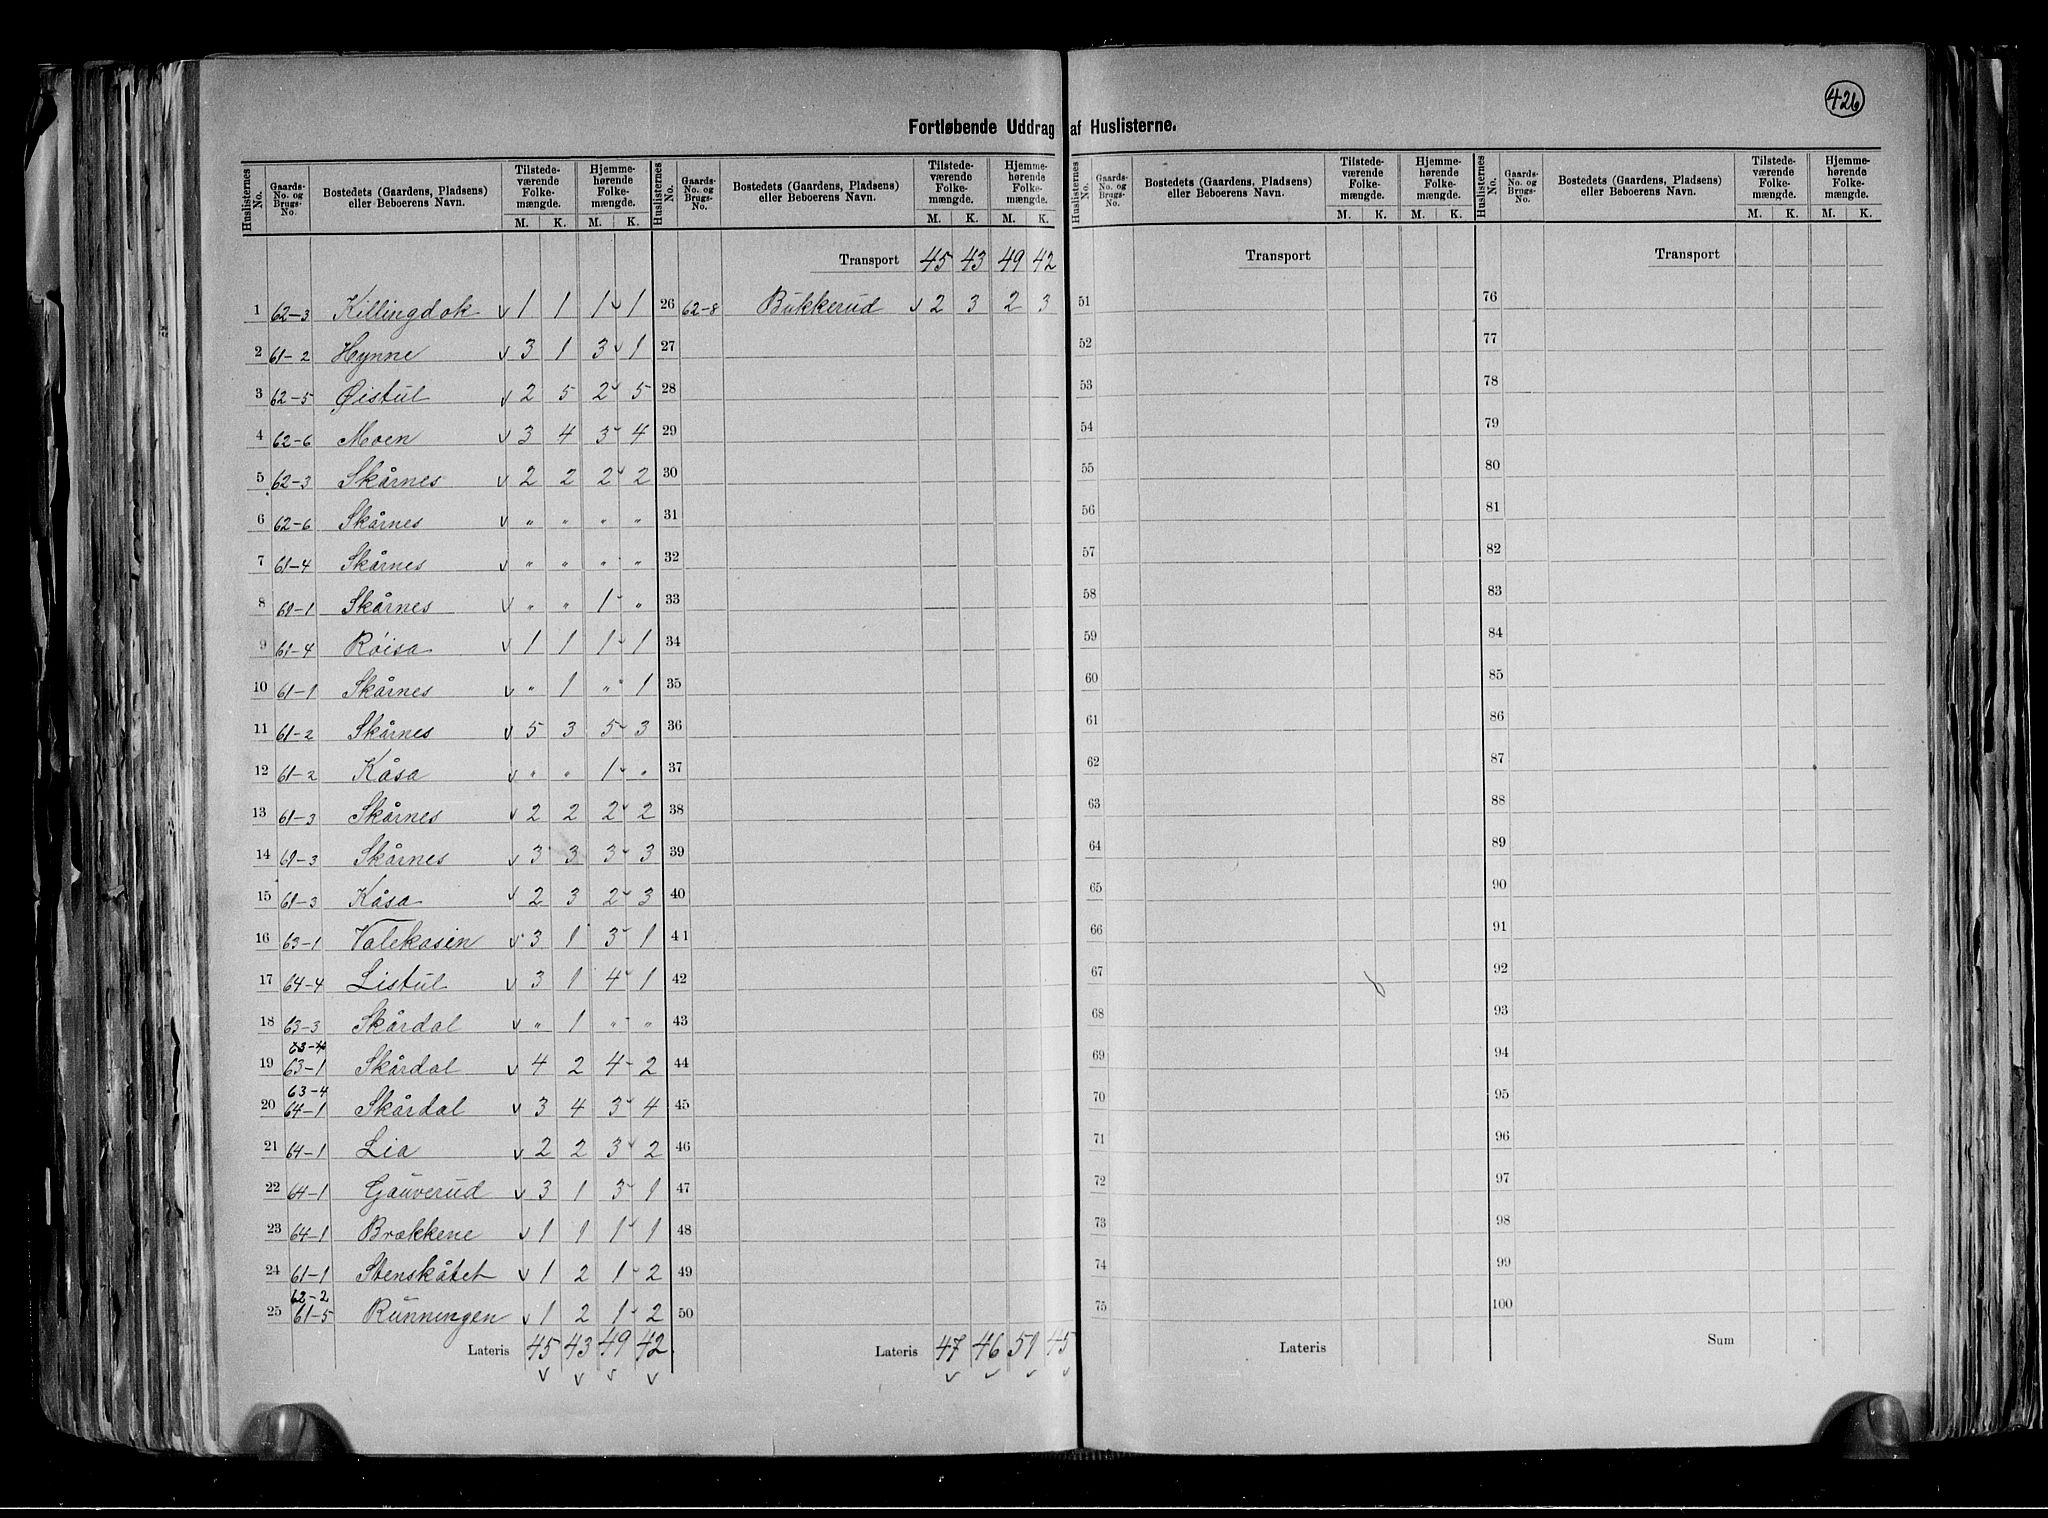 426
Fortløbende Uddrag af Huslisterne.
Huslisternes No. Gaards-No. og Brugs-No. Bostedets (Gaardens, Pladsens) eller Beboerens Navn. Tilstedeværende Folkemængde. M. K. Hjemmehørende Folkemængde. M. K.
1 62-3 Killingdok v 1 1 1 v 1
2 61-2 Hynne v 3 1 3 v 1
3 62-5 Øistul v 2 5 2 v 5
4 62-6 Moen v 3 4 3 v 4
5 62-3 Skårnes v 2 2 2 v 2
6 62-6 Skårnes v " " " "
7 61-4 Skårnes v " " " "
8 61-1 Skårnes v " " 1 "
9 61-4 Røisa v 1 1 1 v 1
10 61-1 Skårnes v " 1 " 1
11 61-2 Skårnes v 5 3 5 v 3
12 61-2 Kåsa v " " 1 "
13 61-3 Skårnes v 2 2 2 v 2
14 61-3 Skårnes v 3 3 3 v 3
15 61-3 Kåsa v 2 3 2 v 3
16 63-1 Valekasin v 3 1 3 v 1
17 64-4 Listul v 3 1 4 v 1
18 63-3 Skårdal v " 1 " "
63-4
19 63-1 Skårdal v 4 2 4 2
63-4
20 64-1 Skårdal v 3 4 3 v 4
21 64-1 Lia v 2 2 3 v 2
22 64-1 Gauverud v 3 1 3 1
23 64-1 Brækkene v 1 1 1 v 1
24 61-1 Stenskåtet v 1 2 1 v 2
62-2
25 61-5 Runningen v 1 2 1 2
Lateris 45 43 49 42
v v v v
Huslisternes No. Gaards-No. og Brugs-No. Bostedets (Gaardens, Pladsens) eller Beboerens Navn. Tilstedeværende Folkemængde. M. K. Hjemmehørende Folkemængde. M. K.
Transport 45 43 49 42
26 62-8 Bukkerud v 2 3 2 3
27
28
29
30
31
32
33
34
35
36
37
38
39
40
41
42
43
44
45
46
47
48
49
50
Lateris 47 46 51 45
v v v v
Huslisternes No. Gaards-No. og Brugs-No. Bostedets (Gaardens, Pladsens) eller Beboerens Navn. Tilstedeværende Folkemængde. M. K. Hjemmehørende Folkemængde. M. K.
Transport
51
52
53
54
55
56
57
58
59
60
61
62
63
64
65
66
67
68
69
70
71
72
73
74
75
Lateris
Huslisternes No. Gaards-No. og Brugs-No. Bostedets (Gaardens, Pladsens) eller Beboerens Navn. Tilstedeværende Folkemængde. M. K. Hjemmehørende Folkemængde. M. K.
Transport
76
77
78
79
80
81
82
83
84
85
86
87
88
89
90
91
92
93
94
95
96
97
98
99
100
Sum